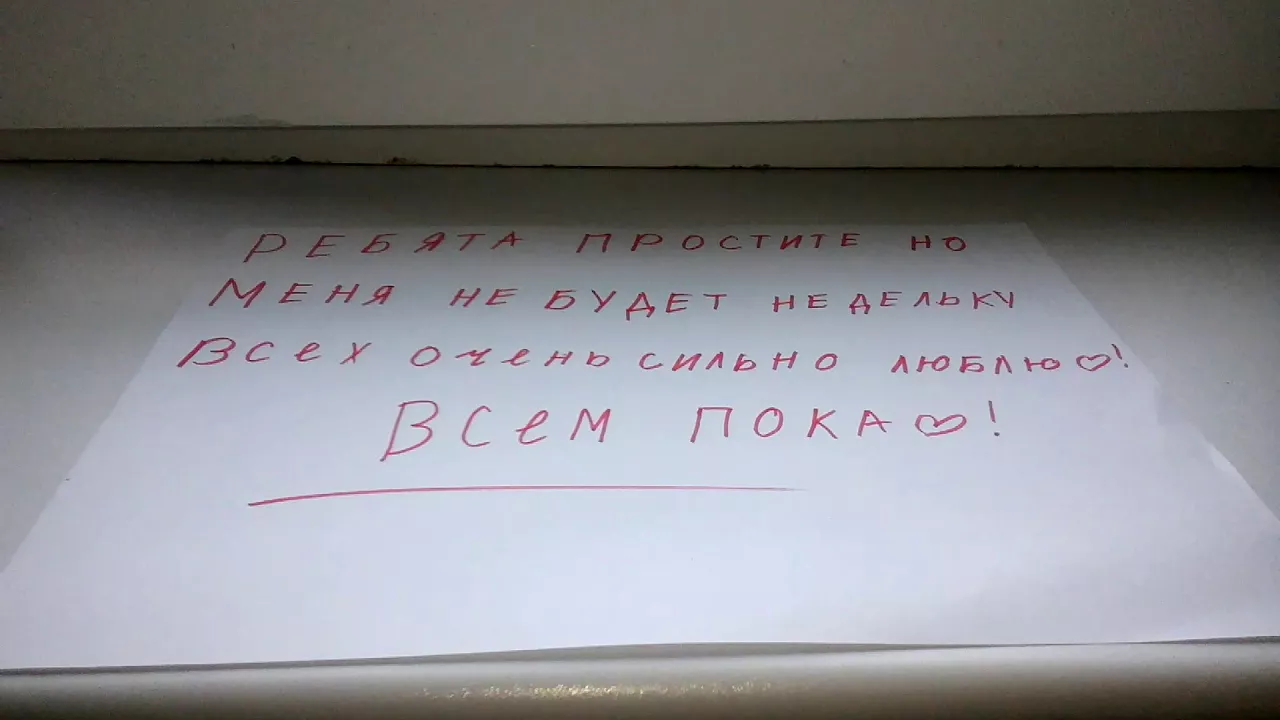 РЕБЯТА ПРОСТИТЕ НО
МЕНЯ НЕ БУДЕТ НЕДЕЛЬКУ
ВСЕХ ОЧЕНЬ СИЛЬНО ЛЮБЛЮ♡!
ВСЕМ ПОКА♡!